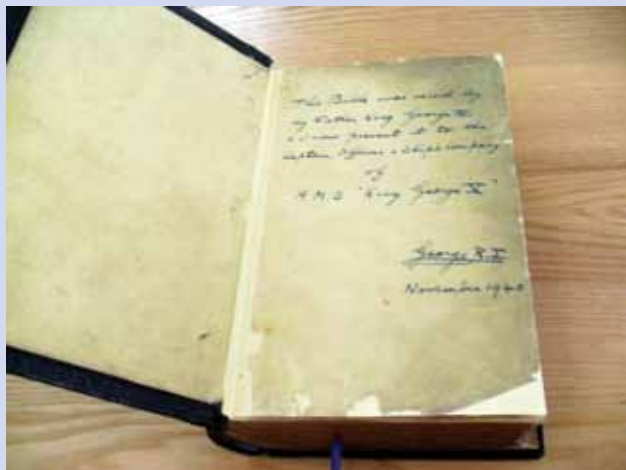 This Bible was used by
my Father King George V.
& I now present it to the
Captain Officers & Ship's company
of
H.M.S "King George V"
George R.I.
November 1940